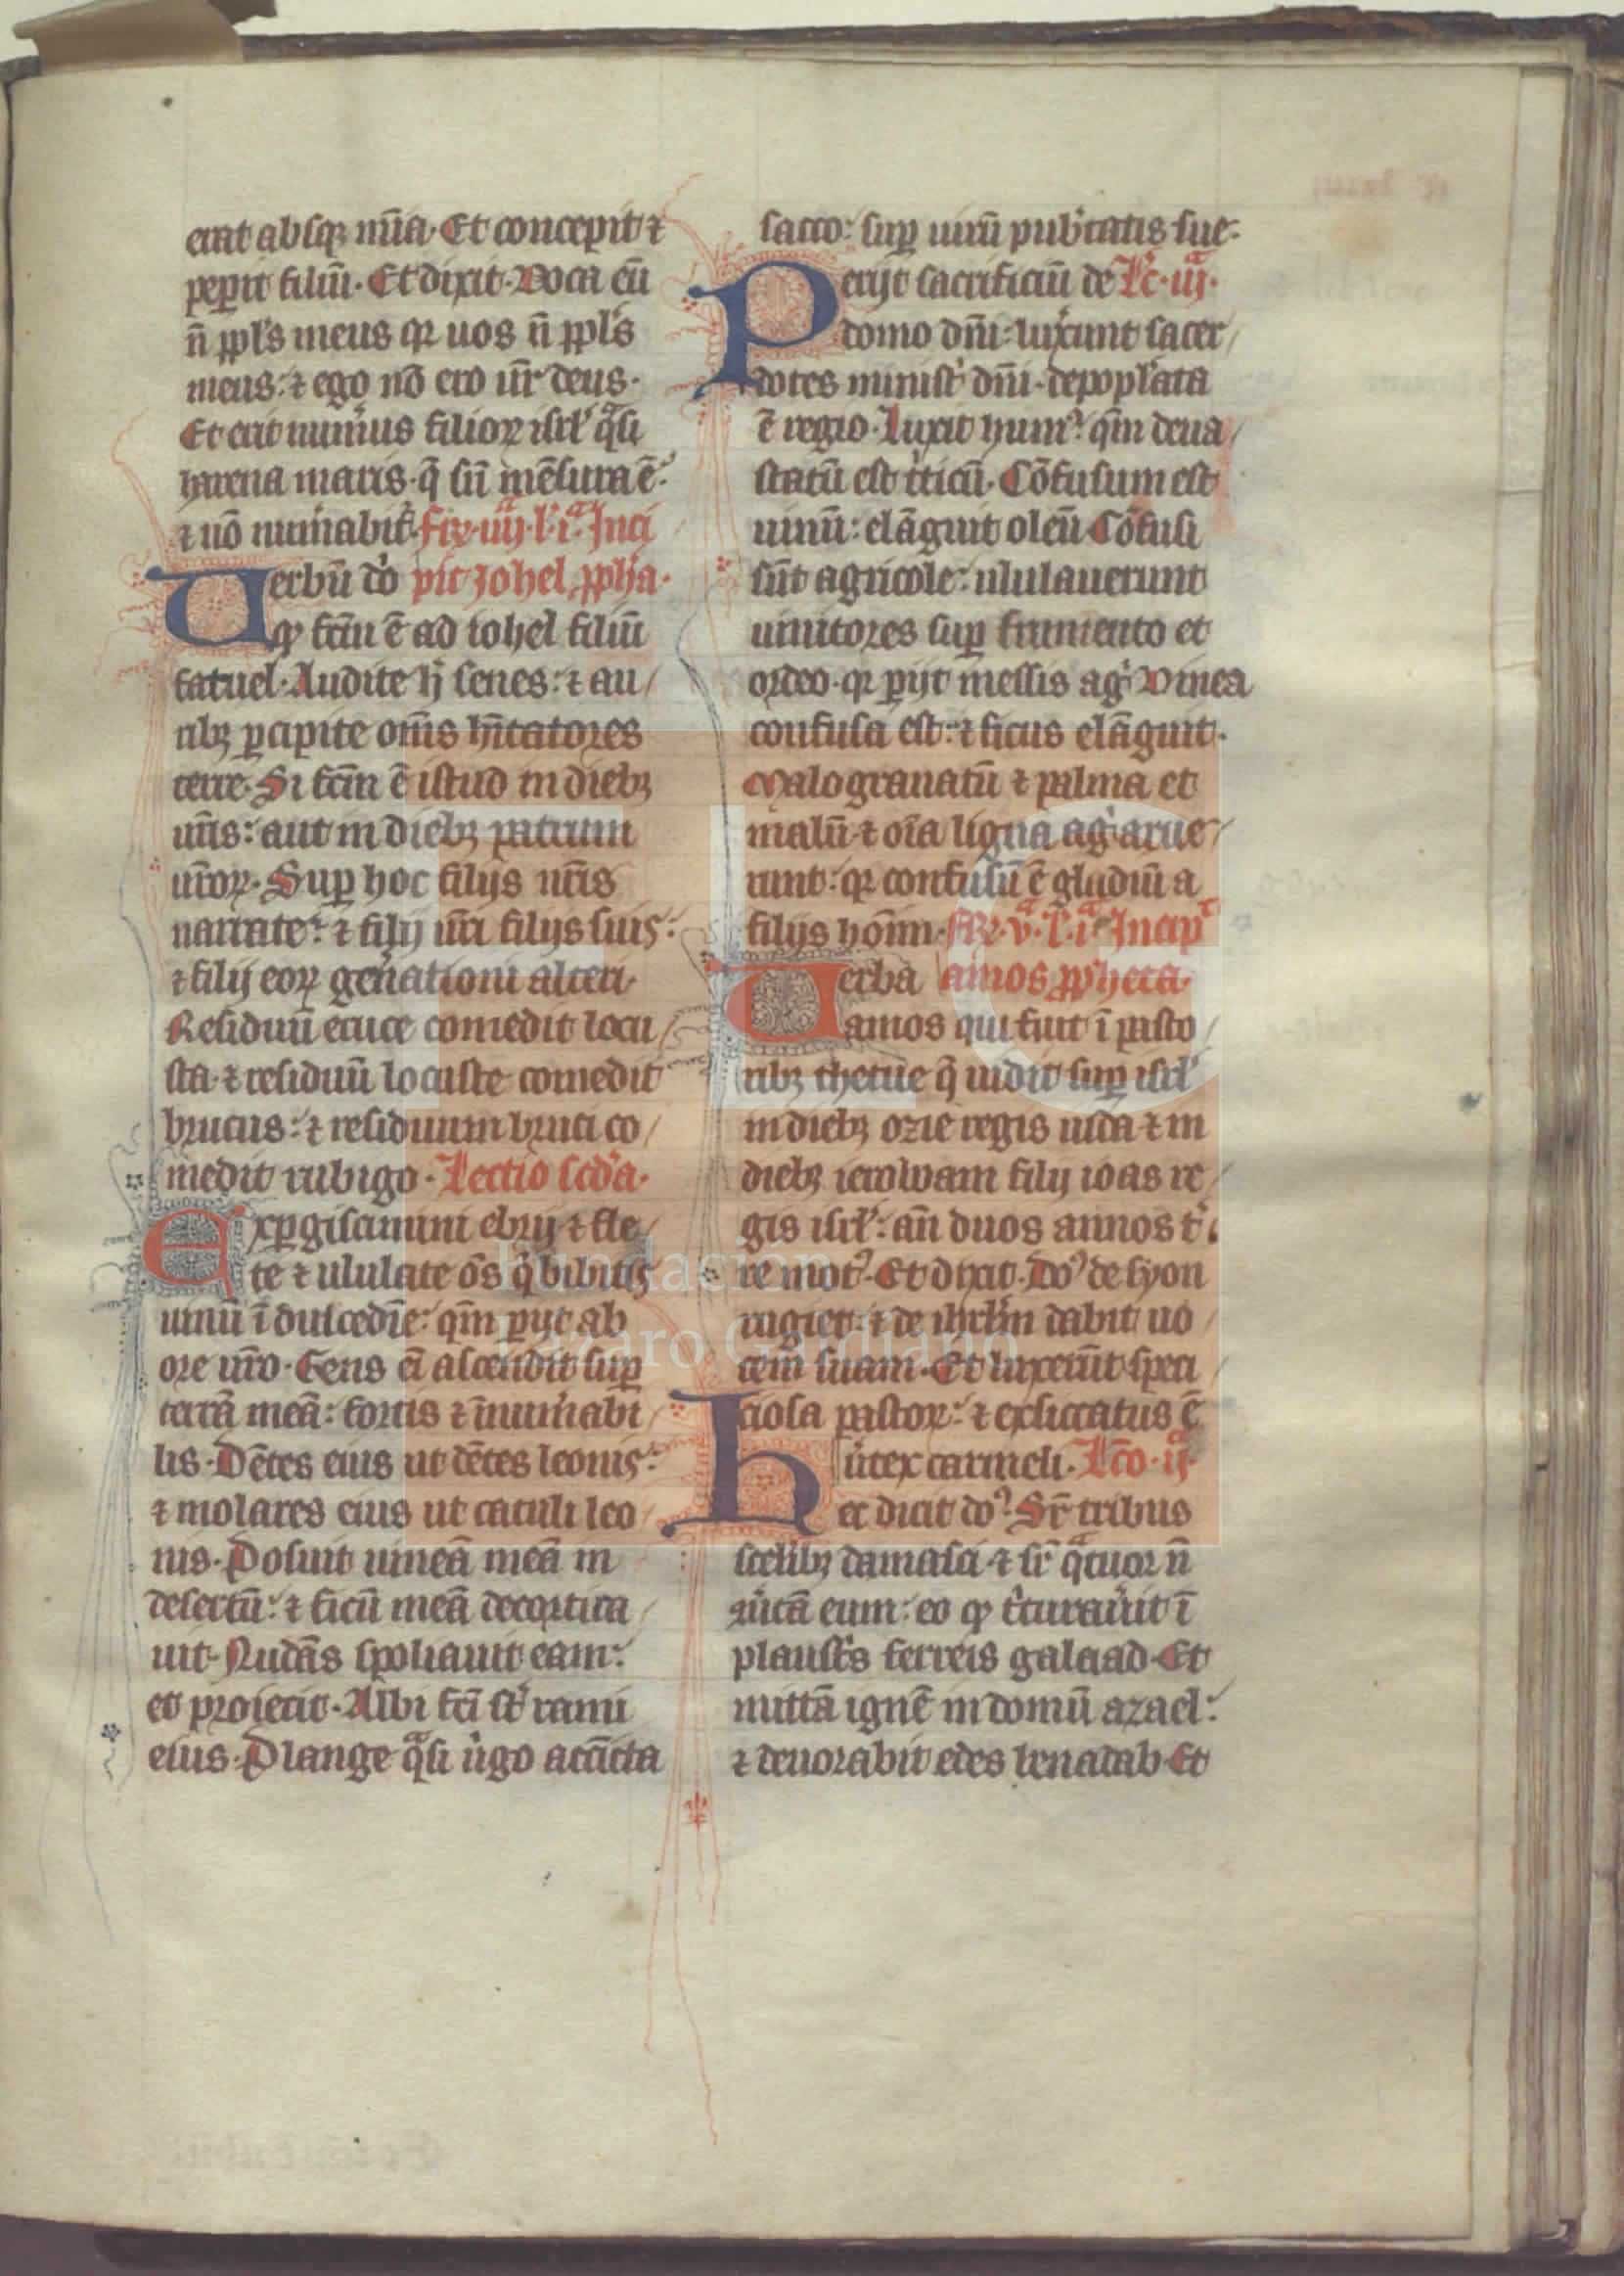 erat absq; mīa. Et concepit ⁊
peperit filiū. Et dixit. Voca eū
n̄ ppl's meus qr uos n̄ ppl's
meus: ⁊ ego nō ero ur̄ deus.
Et erit num̄us filioꝝ isrl' qͣsi
harena maris. q̄ sn̄ mēsura ē:
⁊ nō num̄abit̄. Fr̄. iiij. l'. iͣ. Inci
Verbū do pit Johel ppħa.
qd̓ fcm̄ ē ad iohel filiū
fatuel. Audite h̓ senes: ⁊ au/
ribꝫ ꝑcipite om̄s hītatores
terre. Si fcm̄ ē istud in diebꝫ
ur̄is: aut in diebꝫ patrum
ur̄oꝝ. Suꝑ hoc filijs ur̄is
narrate: ⁊ filij ur̄i filijs suis:
⁊ filij eoꝝ gen̄ationi alteri.
Residuū eruce comedit locu/
sta. ⁊ residuū locuste comedit
brucus: ⁊ residuum bruci co/
medit rubigo. Lectio scd̄a.
Exꝑgiscimini ebrij ⁊ fle/
te ⁊ ululate ōs q̓ bibitis
uinū ī dulcedīe: qm̄ ꝑijt ab
ore ur̄o. Gens ei ascendit suꝑ
terrā meā: fortis ⁊ īnum̄abi/
lis. Dētes eius ut dētes leonis:
⁊ molares eius ut catuli leo/
nis. Posuit uineā meā in
desertū: ⁊ ficū meā decortica/
uit. Nudās spoliauit eam:
et proiecit. Albi fci st̄ rami
eius. Plange qͣsi ūgo accīcta
sacco: suꝑ uirū pub̄tatis sue.
Perijt sacrificiū de Lc̄. iijͣ.
domo dn̄i: luxerunt sacer/
dotes minist̓ dn̄i. depopl'ata
ē regio. Luxit hum̓: qm̄ deua/
statū est t̓ticū. Cōfusum est
uinū: elāguit oleū Cōfusi
sūt agricole: ululauerunt
uinitores suꝑ frumento et
ordeo. qr ꝑijt messis ag̓i Vinea
confusa est: ⁊ ficus elāguit.
Malogranatū ⁊ palma et
malū. ⁊ oīa ligna ag̓i arue/
runt: qr confusū ē gaudiū a
filijs hoīm. Fr̄. vͣ. l'. iͣ. Incip̄t
Verba amos ppheta.
amos qui fuit ī pasto/
ribꝫ thecue q̄ uidit suꝑ isrl'
in diebꝫ ozie regis iuda ⁊ in
diebꝫ ieroboam filij ioas re/
gis isrl': an̄ duos annos t̓/
re mot̓. Et dixit. Do᷒ de syon
rugiet: ⁊ de ihrlm̄ dabit uo/
cem suam. Et luxerūt speci/
ciosa pastoꝝ: ⁊ exsiccatus ē
ūtex carmeli. Lc̄o. ijͣ.
Hec dicit do᷒: Sr̄ tribus
scel'ibꝫ damasci ⁊ sr̄ qͣtuor n̄
ꝯūtā eum: eo qd̓ t̓turaūit ī
plaust̓s ferreis galaad. Et
mittā ignē in domū azael:
⁊ deuorabit edes benadab. Et
FLG
Fundación
Lázaro Galdiano